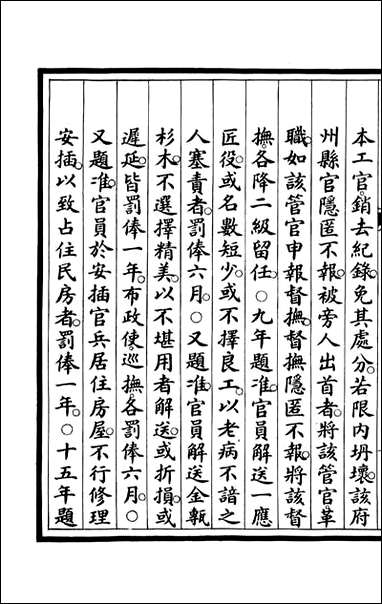 本工官。銷去紀錄。免其處分。若限內坍壞。該府
州縣官隱匿不報。被旁人出首者。將該管官革
職。如該管官申報督撫。督撫隱匿不報。將該督
撫。各降二級留任。○九年題准。官員解送一應
匠役。或名數短少。或不擇良工。以老病不諳之
人塞責者。罰俸六月。○又題准。官員解送金甎
杉木。不選擇精美。以不堪用者解送。或折損。或
遲延。皆罰俸一年。布政使。巡撫。各罰俸六月。○
又題准。官員於安插官兵居住房屋。不行修理
安插。以致占住民房者。罰俸一年。○十五年題